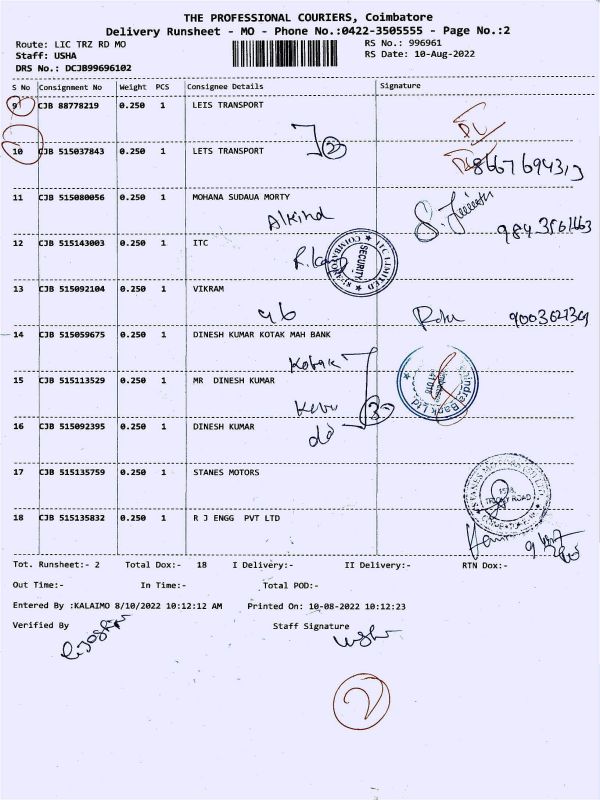 THE PROFESSIONAL COURIERS, Coimbatore
Delivery Runsheet - MO - Phone No.:0422-3505555 - Page No.:2
Route: LIC TRZ RD MO
RS No.: 996961
Staff: USHA
RS Date: 10-Aug-2022
DRS No.: DCJB99696102
S No Consignment No Weight PCS Consignee Details Signature
9 CJB 88778219 0.250 1 LEIS TRANSPORT
10 CJB 515037843 0.250 1 LETS TRANSPORT
8667694313
11 CJB 515080056 0.250 1 MOHANA SUDAUA MORTY
Alkind
12 CJB 515143003 0.250 1 ITC
ITC LIMITED SECURITY
13 CJB 515092104 0.250 1 VIKRAM
14 CJB 515059675 0.250 1 DINESH KUMAR KOTAK MAH BANK
Kotak
15 CJB 515113529 0.250 1 MR DINESH KUMAR
16 CJB 515092395 0.250 1 DINESH KUMAR
do
17 CJB 515135759 0.250 1 STANES MOTORS
TRICHY ROAD
18 CJB 515135832 0.250 1 R J ENGG PVT LTD
Tot. Runsheet:- 2 Total Dox:- 18 I Delivery:- II Delivery:- RTN Dox:-
Out Time:- In Time:- Total POD:-
Entered By :KALAIMO 8/10/2022 10:12:12 AM Printed On: 10-08-2022 10:12:23
Verified By Staff Signature
2